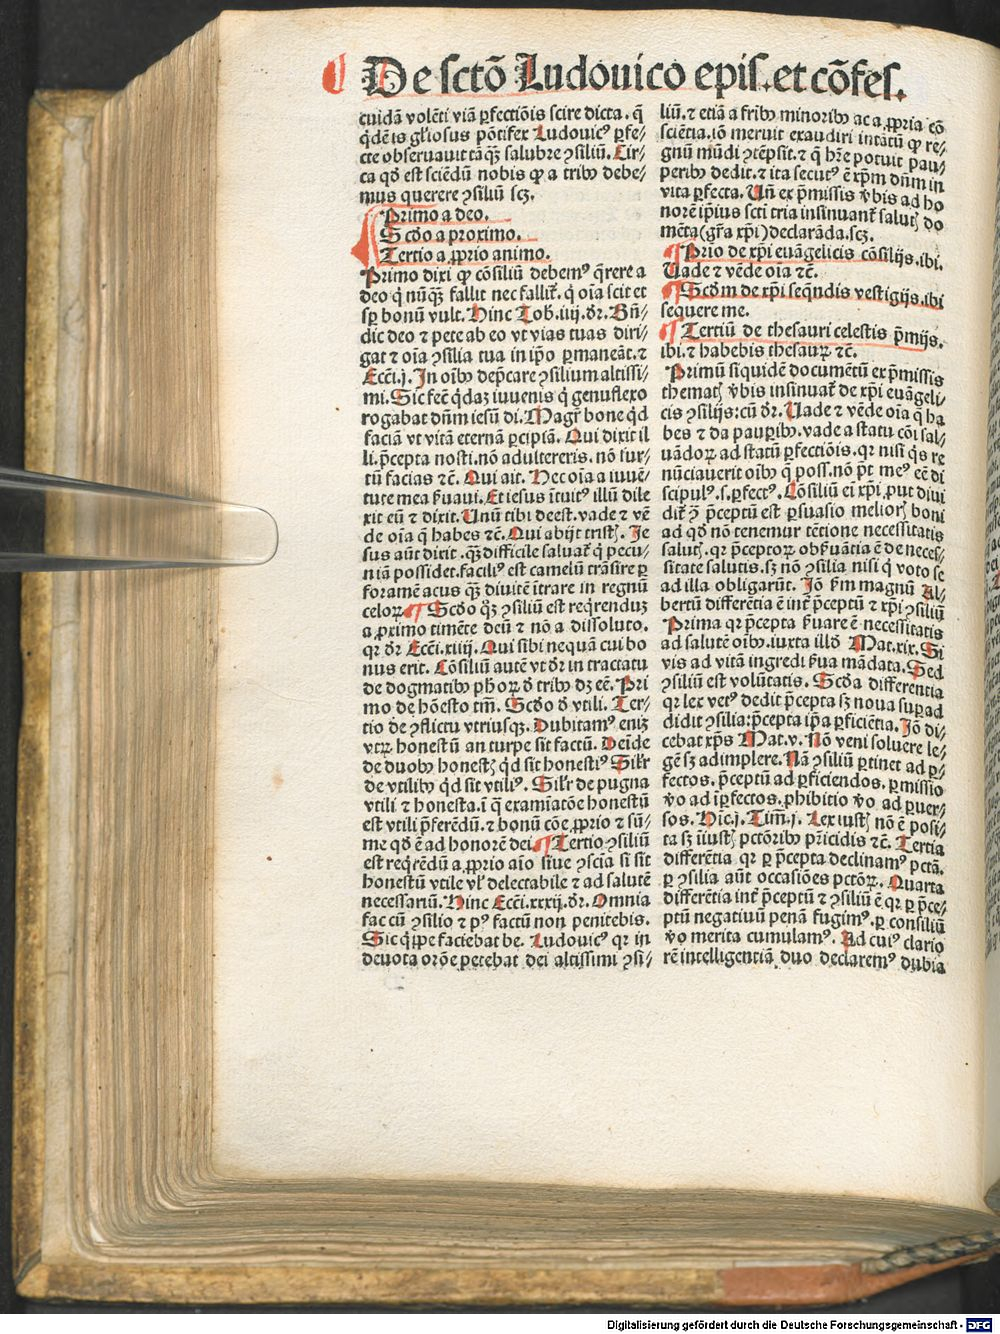 De sctō Ludouico epis. et cōfes.
cuidā volēti viā ꝑfectiōis scire dicta. q̄
q̄dē is gl'iosus pōtifex Ludouicꝰ ꝑfe⸗
cte obseruauit tāq̄ꝫ salubre ꝯsiliū. Cir⸗
ca qđ est sciēdū nobis ꝙ a tribꝰ debe⸗
mus querere ꝯsiliū scꝫ.
Primo a deo.
Scđo a proximo.
Tertio a ꝓprio animo.
Primo dixi ꝙ cōsiliū debemꝰ q̄rere a
deo q̇ nūq̄ꝫ fallit nec fallit᷑. q̇ oīa scit et
sꝑ bonū vult. Hinc Tob. iiij. đr. Bn̄⸗
dic deo ⁊ pete ab eo vt vias tuas diri⸗
gat ⁊ oīa ꝯsilia tua in ip̄o ꝑmaneāt. ⁊
Ecci. j. In oībꝰ dep̄care ꝯsilium altissi⸗
mi. Sic fec̄ q̇daꝫ iuuenis q̇ genuflexo
rogabat dn̄m iesū di. Magr̄ bone q̇d
faciā vt vitā eternā ꝑcipiā. Qui dixit il
li. p̄cepta nosti. nō adultereris. nō fur⸗
tū facias ⁊c̄. Qui ait. Hec oīa a iuuē⸗
tute mea ẜuaui. Et iesus ītuitꝰ illū dile
xit eū ⁊ dixit. Unū tibi deest. vade ⁊ vē
de oīa q̄ habes ⁊c̄. Qui abijt tristꝭ. Je
sus aūt dixit. q̄ꝫ difficile saluat᷑ q̇ pecu⸗
niā possidet. faciliꝰ est camelū trāsire ꝑ
foramē acus q̄ꝫ diuitē ītrare in regnū
celoꝝ. Scđo q̄ꝫ ꝯsiliū est req̇renduꝫ
a ꝓximo timēte deū ⁊ nō a dissoluto.
qꝛ đr Ecci. xiiij. Qui sibi nequā cui bo
nus erit. Cōsiliū autē vt đr in tractatu
de dogmatibꝰ ph̄oꝝ đ tribꝰ dꝫ eē. Pri
mo de hōesto tm̄. Scđo đ vtili. Ter⸗
tio de ꝯflictu vtriusqꝫ. Dubitamꝰ eniꝫ
vtꝝ honestū an turpe sit factū. Deīde
de duobꝰ honestꝭ q̇d sit honestiꝰ. Silr̄
de vtilibꝰ q̇d sit vtiliꝰ. Silr̄ de pugna
vtili ⁊ honesta. ī q̄ examīatōe honestū
est vtili p̄ferēdū. ⁊ bonū cōe ꝓprio ⁊ sū⸗
me qđ ē ad honorē dei. Tertio ꝯsiliū
est req̇rēdū a ꝓprio aīo siue ꝯscīa si sit
honestū vtile vl' delectabile ⁊ ad salutē
necessariū. Hinc Ecci. xxxij. đr. Omnia
fac cū ꝯsilio ⁊ pꝰ factū non penitebis.
Sic q̇ipe faciebat be. Ludouicꝰ qꝛ in
deuota orōe petebat dei altissimi ꝯsi⸗
liū. ⁊ etiā a fr̄ibꝰ minoribꝰ ac a ꝓpria cō
sciētia. iō meruit exaudiri intātū ꝙ re⸗
gnū mūdi ꝯtēpsit. ⁊ q̄ hr̄e potuit pau⸗
peribꝰ dedit. ⁊ ita secutꝰ ē xp̄m dn̄m in
vita ꝑfecta. Un̄ ex p̄missis v̄bis ad ho
norē ip̄ius scti tria insinuant᷑ salutꝭ do
mēta (gr̄a xp̄i) declarāda. scꝫ.
Prio de xp̄i euāgelicis cōsilijs. ibi.
Uade ⁊ vēde oīa ⁊c̄.
Scđm de xp̄i seq̄ndis vestigijs. ibi
sequere me.
Tertiū de thesauri celestis p̄mijs.
ibi. ⁊ habebis thesauꝝ ⁊c̄.
Primū siquidē documētū ex p̄missis
thematꝭ v̄bis insinuat᷑ de xp̄i euāgeli⸗
cis ꝯsilijs: cū đr. Uade ⁊ vēde oīa q̄ ha
bes ⁊ da pauꝑibꝰ. vade a statu cōi sal⸗
uādoꝝ ad statū ꝑfectiōis. qꝛ nisi q̇s re
nūciauerit oībꝰ q̄ poss. nō p̄t meꝰ eē di
scipulꝰ. s. ꝑfectꝰ. Cōsiliū ei xp̄i ꝓut diui
dit᷑ ꝯ̄ p̄ceptū est ꝑsuasio meliorꝭ boni
ad qđ nō tenemur rētione necessitatis
salutꝭ. qꝛ p̄ceptoꝝ obẜuātia ē de neces⸗
sitate salutis. sꝫ nō ꝯsilia nisi q̇ voto se
ad illa obligarūt. Jō ẜm magnū Al⸗
bertū differētia ē int᷑ p̄ceptū ⁊ xp̄i ꝯsiliū
Prima qꝛ p̄cepta ẜuare ē necessitatis
ad salutē oībꝰ. iuxta illđ Mat. xix. Si
vis ad vitā ingredi ẜua mādata. Sed
ꝯsiliū est volūtatis. Scđa differentia
qꝛ lex vetꝰ dedit p̄cepta sꝫ noua suꝑad
didit ꝯsilia: p̄cepta ip̄a ꝑficiētia. Jō di⸗
cebat xp̄s Mat. v. Nō veni soluere le⸗
gē sꝫ adimplere. Nā ꝯsiliū ꝑtinet ad ꝑ⸗
fectos. p̄ceptū ad ꝑficiendos. ꝑmissio
v̄o ad īꝑfectos. ꝓhibitio v̄o ad ꝑuer⸗
sos. Hic. j. Tim̄. j. Lex iustꝭ nō ē posi⸗
ta sꝫ īiustꝭ pctōribꝰ p̄ricidis ⁊c̄. Tertia
differētia qꝛ ꝑ p̄cepta declinamꝰ pctā.
ꝑ ꝯsilia aūt occasiōes pctōꝝ. Quarta
differētia int᷑ p̄ceptū ⁊ ꝯsiliū ē qꝛ ꝑ p̄ce⸗
ptū negatiuū penā fugimꝰ. ꝑ consiliū
v̄o merita cumulamꝰ. Ad cuiꝰ clario
rē intelligentiā duo declaremꝰ dubia
Digitalisierung gefördert durch die Deutsche Forschungsgemeinschaft - DFG